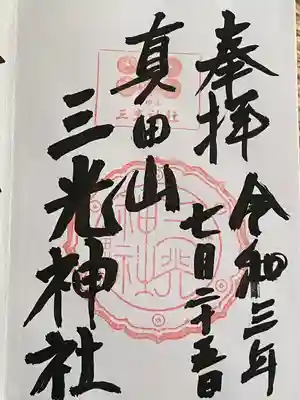 奉拝
令和三年
七月二十五日
真田山
三光神社
三光神社